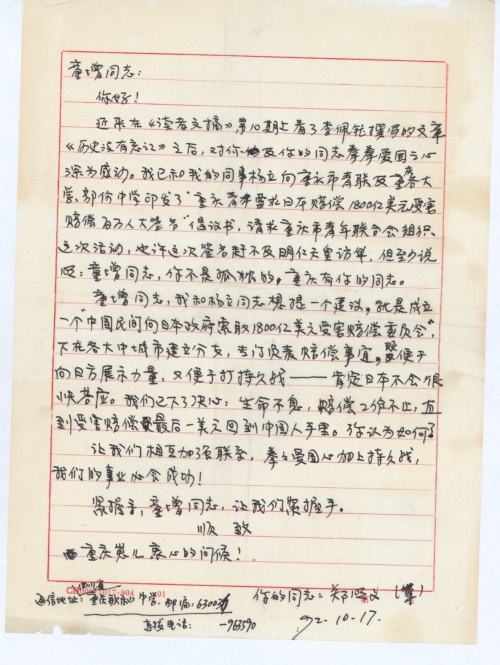 童增同志：
你好！
近来在《读者文摘》第10期上看了李佩钰撰写的文章
《历史没有忘记》之后，对你及你的同志拳拳爱国之心
深为感动。我已和我的同事杨立向重庆市青联及重庆各大
学、部份中学印发了“重庆青年要求日本赔偿1800亿美元受害
赔偿百万人大签名”倡议书，请求重庆市青年联合会组织
这次活动，也许这次签名赶不及明仁天皇访华，但至少说
明：童增同志，你不是孤独的。重庆有你的同志。
童增同志，我和杨立同志想提一个建议。就是成立
一个“中国民间向日本政府索取1800亿美元受害赔偿委员会”，
下在各大中城市建立分支，专门负责赔偿事宜。既便于
向日方展示力量，又便于打持久战——肯定日本不会很
快答应。我们已下了决心：生命不息，赔偿工作不止，直
到受害赔偿最后一美元回到中国人手里。你认为如何？
让我们相互加强联系，拳拳爱国心加上持久战，
我们的事业必会成功！
紧握手，童增同志，让我们紧握手。
顺致
重庆崽儿衷心的问候！
你的同志：郑
通信地址：重庆 中学. 邮编：6300
直拨电话： -963590
92.10.17.